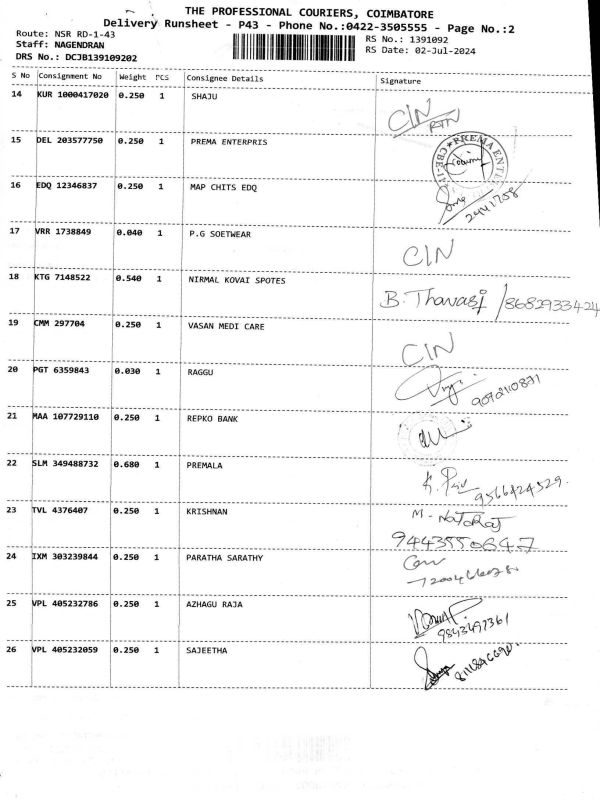 THE PROFESSIONAL COURIERS, COIMBATORE
Delivery Runsheet - P43 - Phone No.:0422-3505555 - Page No.:2
Route: NSR RD-1-43
Staff: NAGENDRAN
DRS No.: DCJB139109202
RS No.: 1391092
RS Date: 02-Jul-2024
S No Consignment No Weight PCS Consignee Details Signature
14 KUR 1000417020 0.250 1 SHAJU
CIN
RTN
15 DEL 203577750 0.250 1 PREMA ENTERPRIS
PREMA
16 EDQ 12346837 0.250 1 MAP CHITS EDQ
2441758
17 VRR 1738849 0.040 1 P.G SOETWEAR
CIN
18 KTG 7148522 0.540 1 NIRMAL KOVAI SPOTES
B. Thavasi /8682933424
19 CMM 297704 0.250 1 VASAN MEDI CARE
CIN
20 PGT 6359843 0.030 1 RAGGU
21 MAA 107729110 0.250 1 REPKO BANK
22 SLM 349488732 0.680 1 PREMALA
9566424529.
23 TVL 4376407 0.250 1 KRISHNAN
M- NATARAJ
24 IXM 303239844 0.250 1 PARATHA SARATHY
25 VPL 405232786 0.250 1 AZHAGU RAJA
9843497361
26 VPL 405232059 0.250 1 SAJEETHA